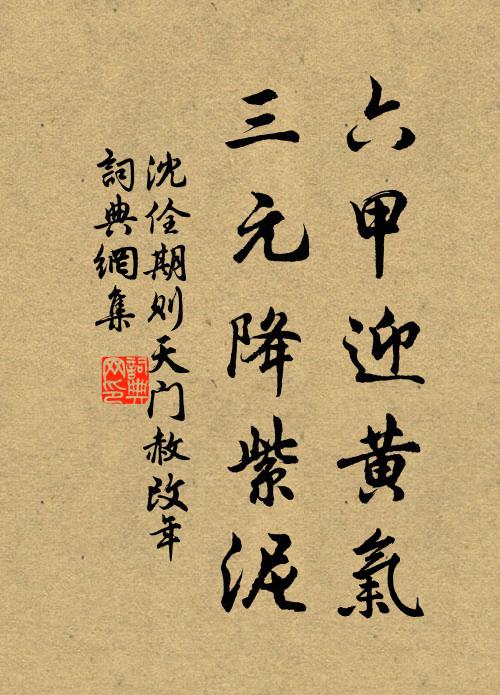 六甲迎黃氣
三元降紫泥
沈佺期則天门赦改年
詞典網集
詞典
网印